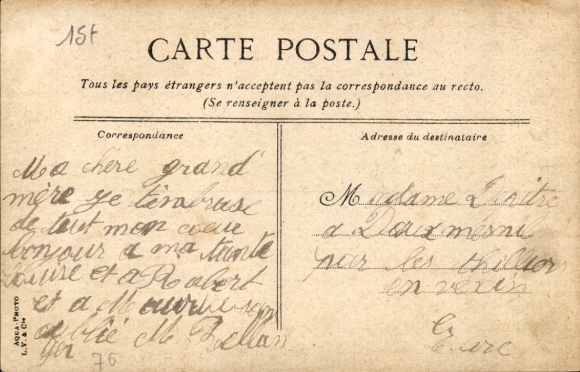 15f
CARTE POSTALE
Tous les pays étrangers n'acceptent pas la correspondance au recto.
(Se renseigner à la poste.)
Correspondance
Ma chère grand'
mère je t'embrase
de tout mon coeur
bonjour a ma tante
Louise et a Robert
et a Maurice
M
76
Adresse du destinataire
Madame
a Douxmesnil
par les thilliers
en vexin
Eure
AQUA-PHOTO
L.V. & Cie